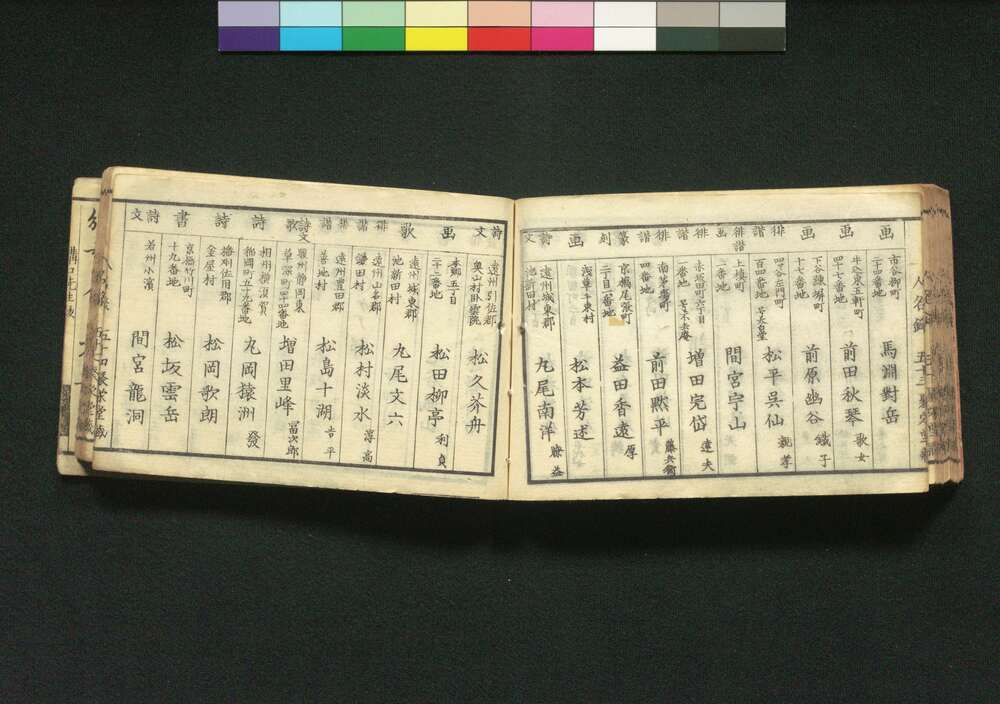 画
市谷柳町
二十四番地
馬淵對岳
画
牛込東五軒町
四十七番地
前田秋琴 歌女
画
下谷練塀町
十七番地
前原幽谷 鐵子
俳諧
四ツ谷左門町
百四番地 号長皇堂
松平呉仙 親孝
画 俳諧
上槙町
二番地
間宮宇山
俳諧
赤坂田町六丁目
一番地
増田完岱 達夫
俳諧
南茅場町
四番地
前田黙平 藤兵衛
篆刻
京橋尾張町
二丁目一番地
益田香遠 厚
画
浅草千束村
松本芳述
詩文
遠州城東郡
池新田村
丸尾南洋 謙益
詩文
遠州引佐郡
奥山村卧雲院
松久芥舟
画
本郷五丁目
二十二番地
松田柳亭 利貞
歌
遠州城東郡
池新田村
丸尾文六
俳諧
遠州山名郡
鎌田村
松村淡水 淳高
俳諧
遠州豊田郡
善地村
松島十湖 吉平
詩文歌
駿州静岡東
草深町四十四番地
増田里峰 冨次郎
詩
相州横須賀
楠岡町五十九番地
九岡猿洲 發
詩
播州佐用郡
金屋村
松岡歌朗
書
京橋竹川町
十九番地
松坂雲岳
詩文
若州小濱
間宮龍洞